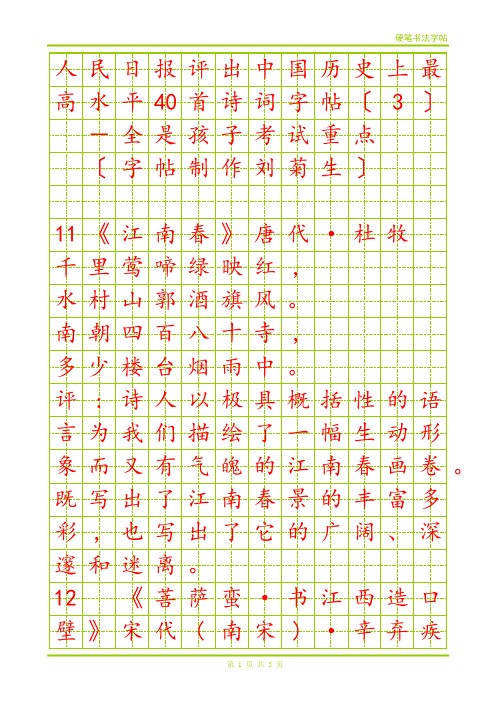 硬笔书法字帖
人民日报评出中国历史上最
高水平40首诗词字帖〔3〕
一全是孩子考试重点
〔字帖制作刘菊生〕
11《江南春》唐代·杜牧
千里莺啼绿映红，
水村山郭酒旗风。
南朝四百八十寺，
多少楼台烟雨中。
评：诗人以极具概括性的语
言为我们描绘了一幅生动形
象而又有气魄的江南春画卷。
既写出了江南春景的丰富多
彩，也写出了它的广阔、深
邃和迷离。
12 《菩萨蛮·书江西造口
壁》宋代(南宋)·辛弃疾
第 1 页 共 5 页